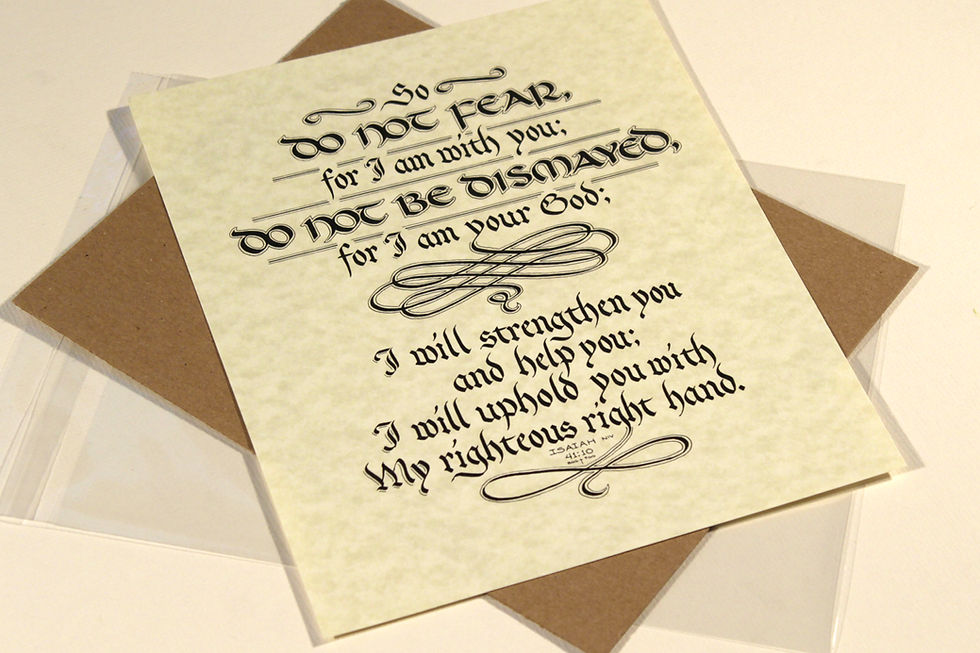 So
DO NOT FEAR,
for I am with you;
DO NOT BE DISMAYED,
for I am your God;
I will strengthen you
and help you;
I will uphold you with
My righteous right hand.
ISAIAH NIV
41:10